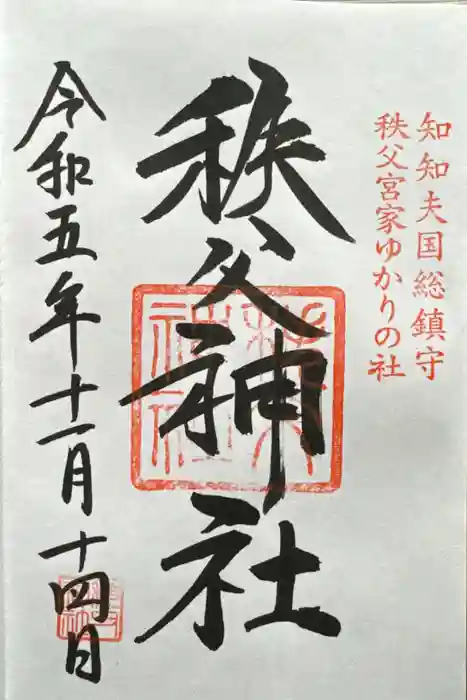 知知夫国総鎮守
秩父宮家ゆかりの社
秩父神社
令和五年十一月十四日